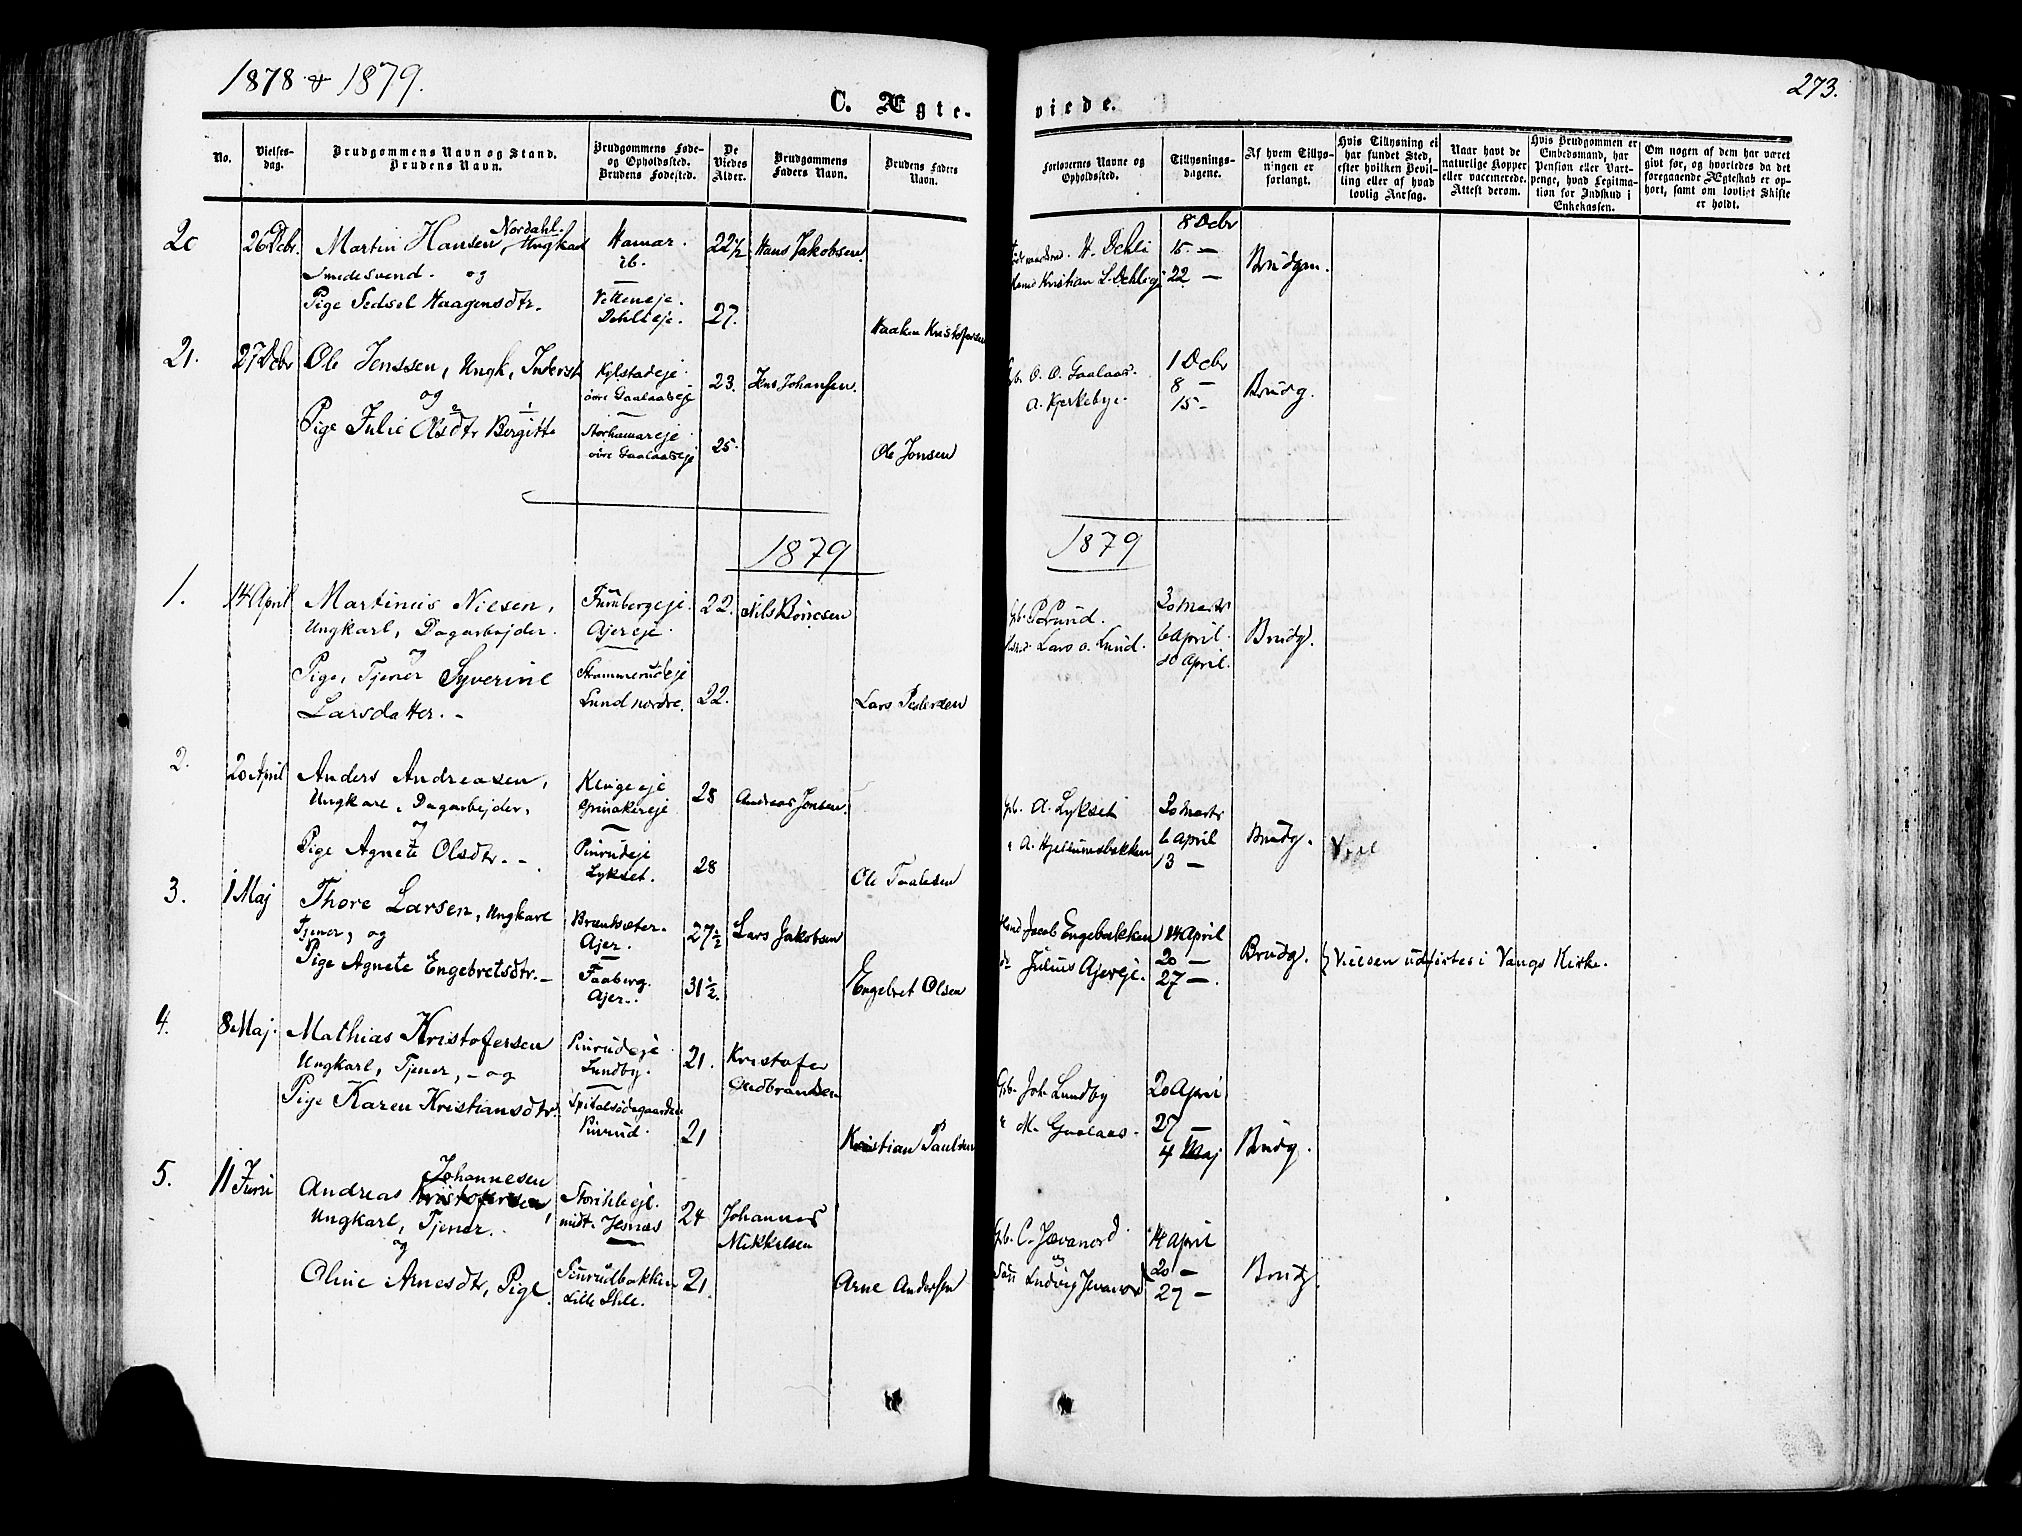 1878 & 1879.
273.
C. Ægte-
viede.
No.
Vielses-
dag.
Brudgommens Navn og Stand.
Brudens Navn.
Brudgommens Føde-
og Opholdssted.
Brudens Fødested.
De
Viedes
Alder.
Brudgommens
Faders Navn.
Brudens Faders
Navn.
Forlovernes Navne og
Opholdssted.
Tillysnings-
dagene.
Af hvem Tillys-
ningen er
forlangt.
Hvis Tillysning ei
har fundet Sted,
efter hvilken Bevil-
ling eller af hvad
lovlig Aarsag.
Naar havt de
naturlige Kopper
eller vaccinerede.
Attest derom.
Hvis Brudgommen er
Embedsmand, har
Pension eller Vart-
penge, hvad Legitima-
tion for Indskud i
Enkekassen.
Om nogen af dem har været
gift før, og hvorledes da det
foregaaende Ægteskab er op-
hørt, samt om lovligt Skifte
er holdt.
20 26 Dcbr. Martin Hansen Nordahl. Ungkarl Hamar. 22 1/2 Hans Jakobsen
Smedesvend. og ib.
Pige Sidsel Haagensdtr. 27.
Dehlieje.
Haaken Kristofersen
H. Dehli
Kristian L. Dehlieje
8 Dcbr
15 —
22 —
Brudgm.
21. 27 Dcbr Ole Jenssen, Ungk, Inderst Kylstadeje 23. Jens Johansen.
og øvre Gaalaaseje
Pige Julie Olsdtr Bergitte Storhamareje 25.
øvre Gaalaaseje
Ole Jonsen
Gb. O. O. Gaalaas.
A. Kjerkebye.
1 Dcbr
8 —
15 —
Brudg.
1879
1879
1. 14 April Martinus Nilsen, Furubergeje. 22. Nils
Ungkarl, Dagarbejder. Ajereje.
og
Pige, Tjener Syverine Strammerudeje
Larsdatter. — Lund nordre. 22.
Lars Pedersen
Gb. P. Lund.
Lars o. Lund.
30 Marts
6 April.
10 April.
Brudg.
2. 20 April Anders Andreasen, 28 Andreas Jonsen.
Ungkarl, Dagarbejder, Grinakereje
og
Pige Agnete Olsdtr. — Pinrudeje
Lykset. 28
Ole Taalesen
Gb. A. Lykset
A. Hjellumsbakken
30 Marts
6 April
13 —
Brudg.
3. 1 Maj Thore Larsen, Ungkarl Brændsæter. 27 1/2 Lars Jakobsen
Tjener, og Ajer.
Pige Agnete Engebretsdtr. — Faaberg. 31 1/2.
Ajer.
Engebret Olsen
Jacob Engebakken
Julius Ajereje.
14 April
20 —
27 —.
Brudg. Vielsen udførtes i Vangs Kirke.
4. 8 Maj. Mathias Kristofersen Pinrudeje 21. Kristofer
Ungkarl, Tjener, — og Lundby. Gudbrandsen
Pige Karen Kristiansdtr. Spitalsødegaarden
Pinrud. 21
Kristian Paulsen
Gb. Joh. Lundby
M. Gaalaas.
20 April
27 —
4 Maj
Brudg.
5. 11 Juni Johannesen
Andreas Kristofersen, Storihleeje. 24 Johannes
Ungkarl, Tjener. midt. Jesnæs Mikkelsen
og
Oline Arnesdtr, Pige. Finrudbakken 21.
Lille Ihle.
Arne Andersen
Gb. C. Jævanord
og
Ludvig Jevanord
14 April
20 —
27 —
Brudg.